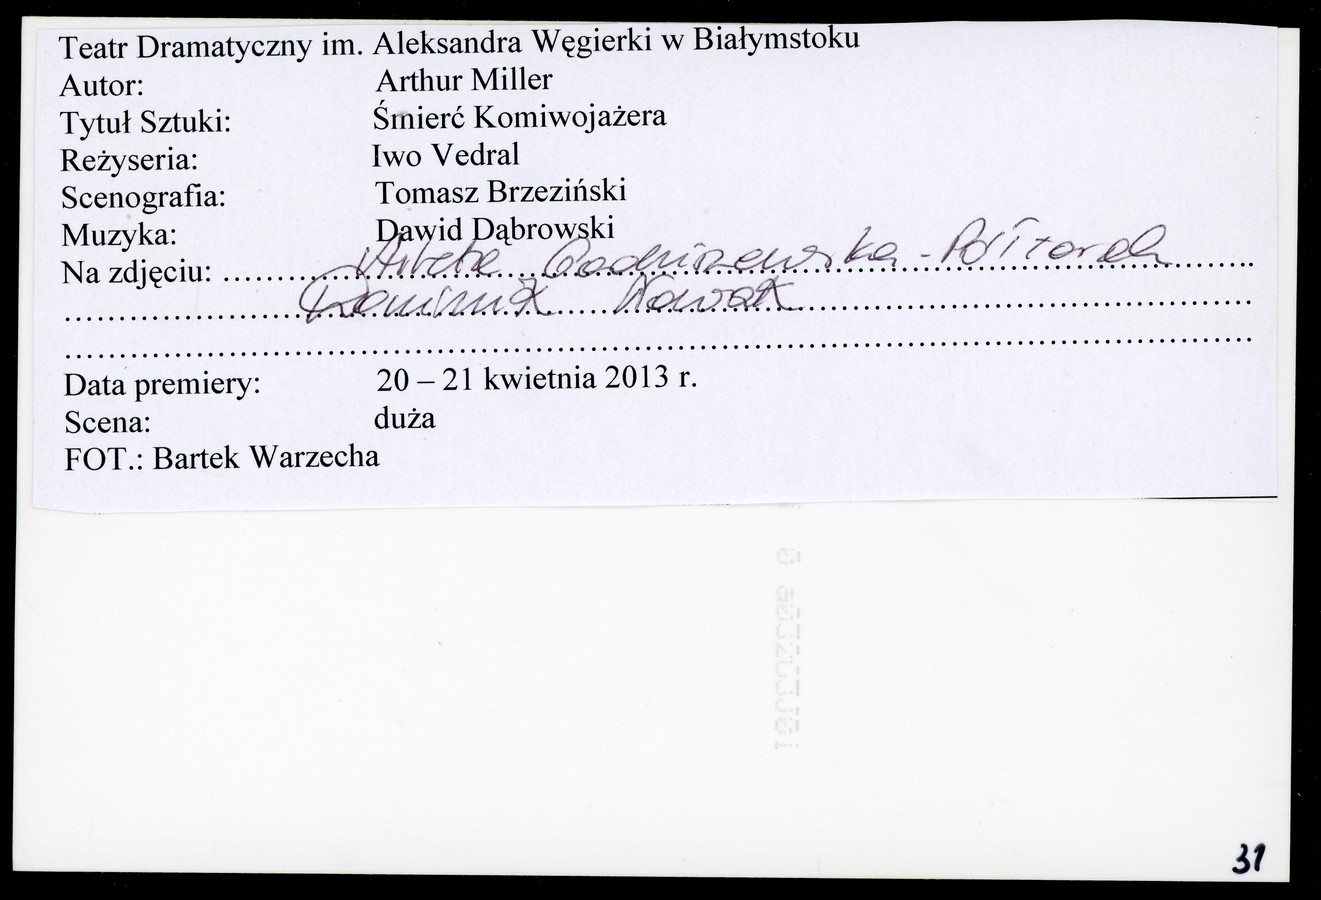 Teatr Dramatyczny im. Aleksandra Węgierki w Białymstoku
Autor: Arthur Miller
Tytuł Sztuki: Śmierć Komiwojażera
Reżyseria: Iwo Vedral
Scenografia: Tomasz Brzeziński
Muzyka: Dawid Dąbrowski
Na zdjęciu: Arleta Godziszewska-Półtorak
Dominik Nowak
Data premiery: 20 – 21 kwietnia 2013 r.
Scena: duża
FOT.: Bartek Warzecha
31